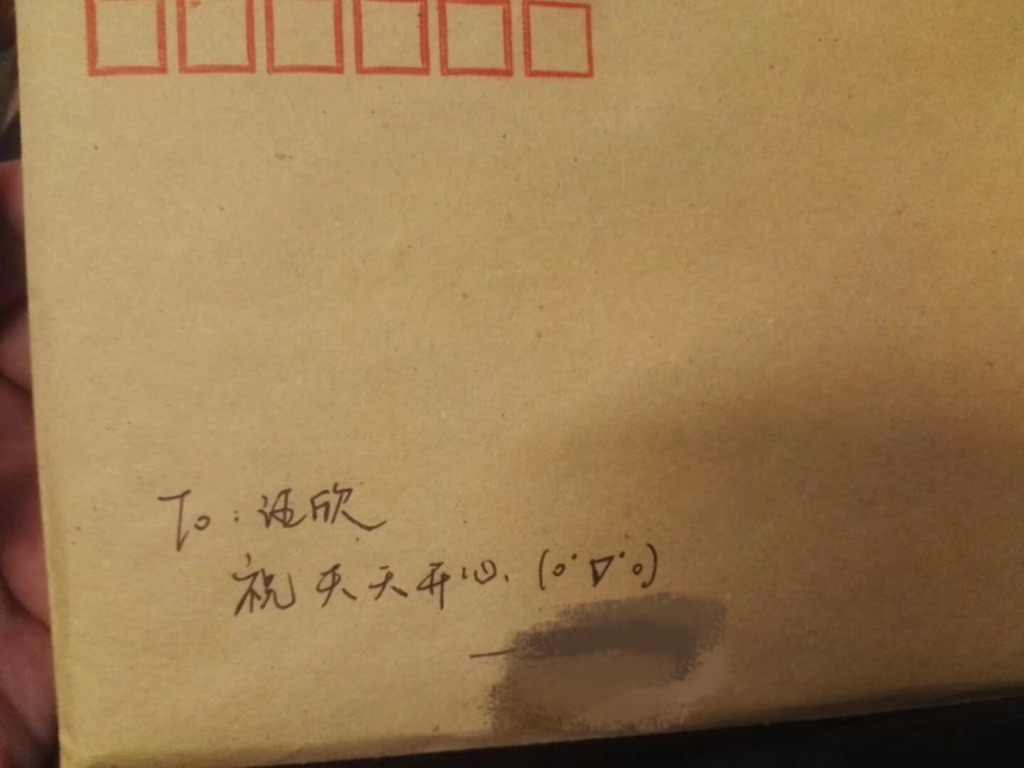 To：证欣
祝天天开心.(o˙▽˙o)
—